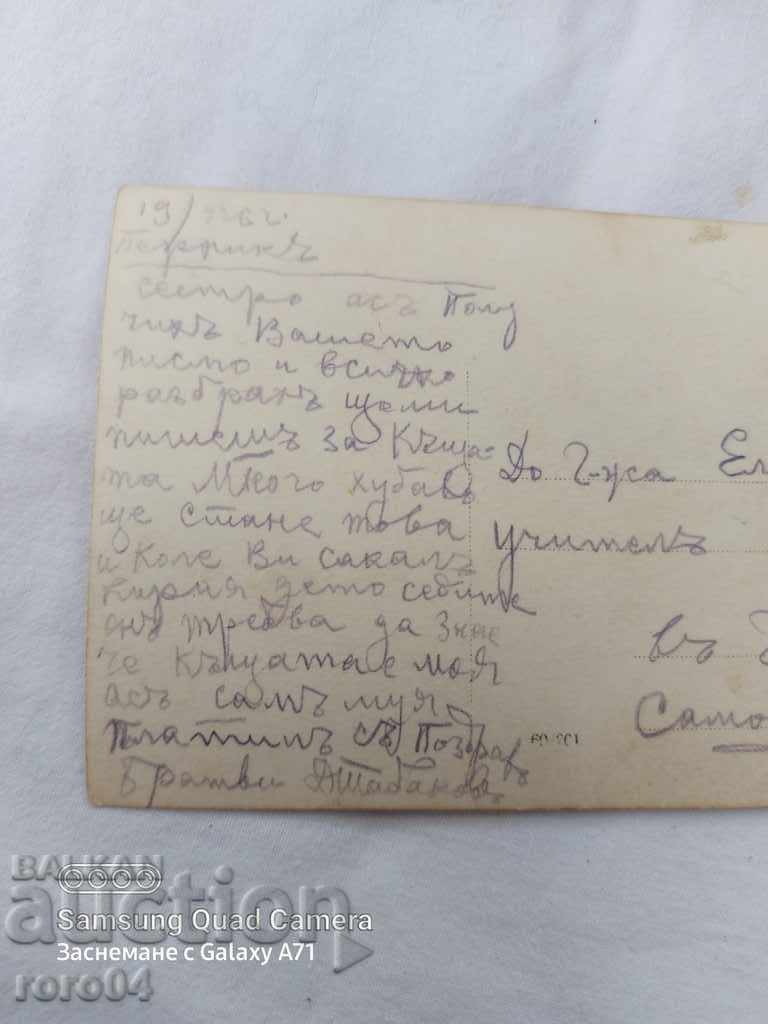 19/
сестро асъ Полу
чихъ Вашето
писмо и всичко
разбрахъ щоми
пишешъ за Къща-
та Много хубавъ
ще стане това
и Коге Ви сакалъ
кирия дето седите
онъ требва да Знае
че Къщата е моя
асъ самъ муя
платилъ Съ Поздрав
Братви Табаковъ
До Г-жа Ел
учителъ
въ
Само
BALKAN
auction
roro04
Samsung Quad Camera
Заснемане с Galaxy A71